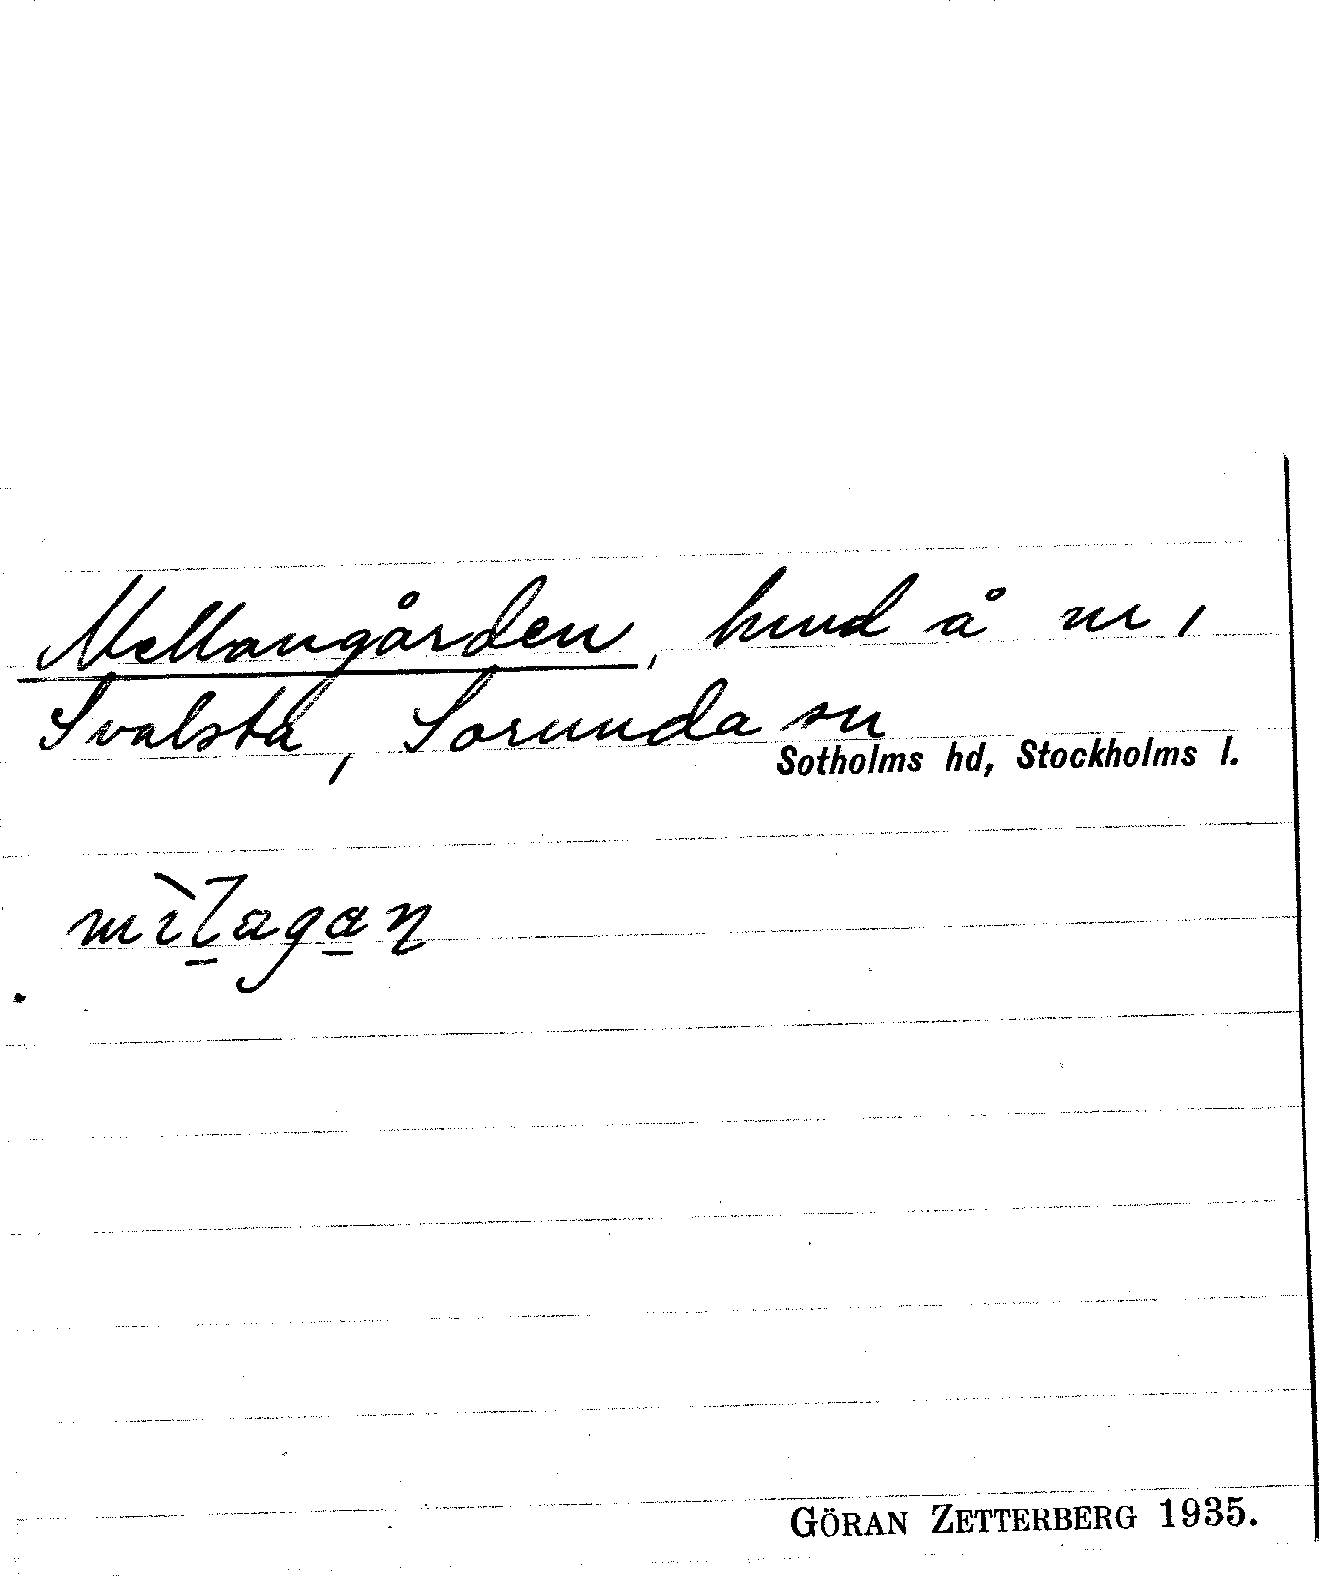 Mellangården, hmd å nr 1
Svalsta, Sorunda sn
Sotholms hd, Stockholms l.
mìlagan
GÖRAN ZETTERBERG 1935.